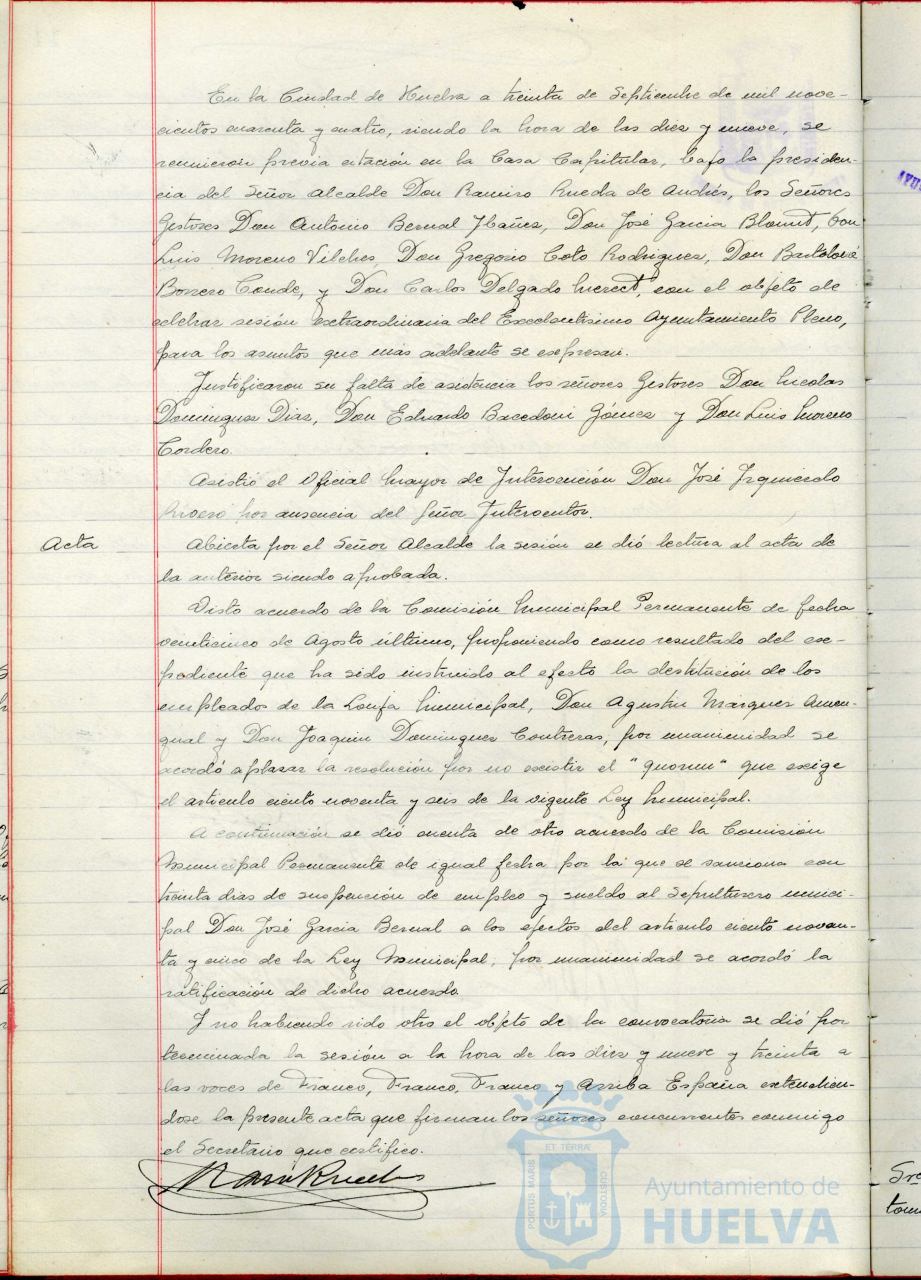 En la Ciudad de Huelva a treinta de Septiembre de mil nove-
cientos cuarenta y cuatro, siendo la hora de las diez y nueve, se
reunieron previa citación en la Casa Capitular, bajo la presiden-
cia del Señor Alcalde Don Ramiro Rueda de Andrés, los Señores
Gestores Don Antonio Bernal Ibañez, Don José Garcia Blount, Don
Luis Moreno Vilches, Don Gregorio Coto Rodriguez, Don Bartolomé
Borrero Conde, y Don Carlos Delgado con el objeto de
celebrar sesión extraordinaria del Excelentisimo Ayuntamiento Pleno,
para los asuntos que más adelante se expresan.
Justificaron su falta de asistencia los señores Gestores Don Nicolas
Dominguez Diaz, Don Eduardo Gómez y Don Luis Moreno
Cordero.
Asistió el Oficial Mayor de Intervención Don José Izquierdo
por ausencia del Señor Interventor.
Acta
Abierta por el Señor Alcalde la sesión se dió lectura al acta de
la anterior siendo aprobada.
Visto acuerdo de la Comisión Municipal Permanente de fecha
veinticinco de Agosto último, proponiendo como resultado del ex-
pediente que ha sido instruido al efecto la destitución de los
empleados de la Lonja Municipal, Don Agustin Márquez Amen-
gual y Don Joaquin Dominguez Contreras, por unanimidad se
acordó aplazar la resolución por no existir el "quorum" que exige
el articulo ciento noventa y seis de la vigente Ley Municipal.
A continuación se dió cuenta de otro acuerdo de la Comisión
Municipal Permanente de igual fecha por la que se sanciona con
treinta dias de suspención de empleo y sueldo al Sepulturero munici-
pal Don José Garcia Bernal a los efectos del articulo ciento noven-
ta y cinco de la Ley Municipal, por unanimidad se acordó la
ratificación de dicho acuerdo.
Y no habiendo sido otro el objeto de la convocatoria se dió por
terminada la sesión a la hora de las diez y nueve y treinta a
las voces de Franco, Franco, Franco y Arriba España extendien-
dose la presente acta que firman los señores concurrentes conmigo
el Secretario que certifico.
PORTUS MARIS ET TERRÆ CUSTODIA
Ayuntamiento de
HUELVA